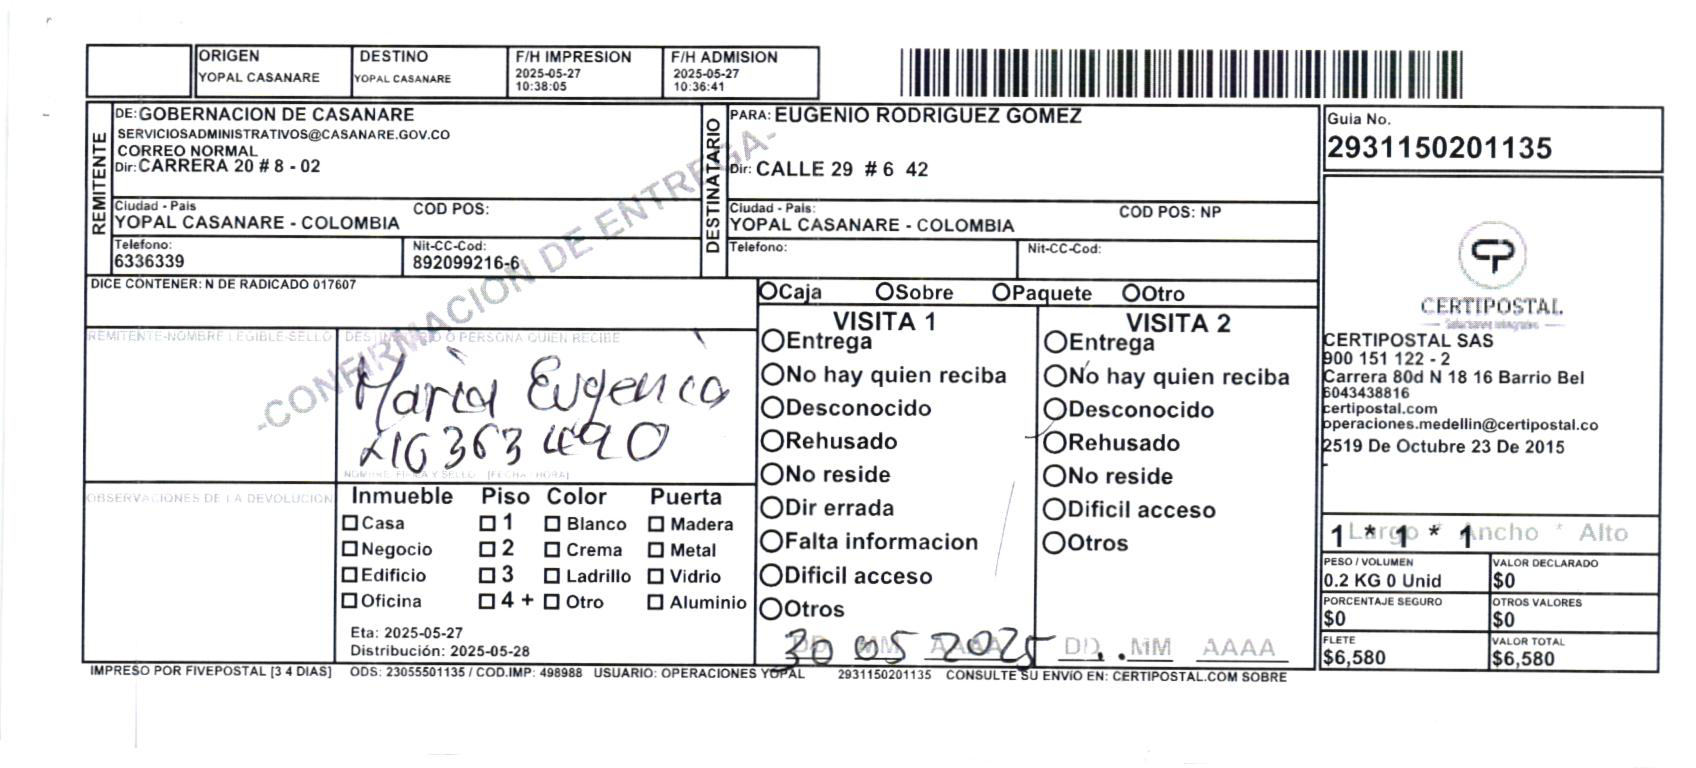 ORIGEN
YOPAL CASANARE
DESTINO
YOPAL CASANARE
F/H IMPRESION
2025-05-27
10:38:05
F/H ADMISION
2025-05-27
10:36:41
REMITENTE
DE: GOBERNACION DE CASANARE
SERVICIOSADMINISTRATIVOS@CASANARE.GOV.CO
CORREO NORMAL
Dir: CARRERA 20 # 8 - 02
Ciudad - Pais
COD POS:
YOPAL CASANARE - COLOMBIA
Telefono:
6336339
Nit-CC-Cod:
892099216-6
DESTINATARIO
PARA: EUGENIO RODRIGUEZ GOMEZ
Dir: CALLE 29 # 6 42
Ciudad - Pais:
COD POS: NP
YOPAL CASANARE - COLOMBIA
Telefono:
Nit-CC-Cod:
Guia No.
2931150201135
-CONFIRMACION DE ENTREGA-
DICE CONTENER: N DE RADICADO 017607
REMITENTE-NOMBRE LEGIBLE-SELLO
DESTINATARIO O PERSONA QUIEN RECIBE
Maria Eugenia
NOMBRE, FIRMA Y SELLO [FECHA HORA]
OBSERVACIONES DE LA DEVOLUCION
Inmueble Piso Color Puerta
Casa 1 Blanco Madera
Negocio 2 Crema Metal
Edificio 3 Ladrillo Vidrio
Oficina 4 + Otro Aluminio
Eta: 2025-05-27
Distribución: 2025-05-28
Caja Sobre Paquete Otro
VISITA 1
Entrega
No hay quien reciba
Desconocido
Rehusado
No reside
Dir errada
Falta informacion
Dificil acceso
Otros
DD MM AAAA
30 05 2025
VISITA 2
Entrega
No hay quien reciba
Desconocido
Rehusado
No reside
Dificil acceso
Otros
DD MM AAAA
CERTIPOSTAL
Soluciones Integrales
CERTIPOSTAL SAS
900 151 122 - 2
Carrera 80d N 18 16 Barrio Bel
6043438816
certipostal.com
operaciones.medellin@certipostal.co
2519 De Octubre 23 De 2015
-
Largo * Ancho * Alto
1 * 1 * 1
PESO / VOLUMEN
0.2 KG 0 Unid
VALOR DECLARADO
$0
PORCENTAJE SEGURO
$0
OTROS VALORES
$0
FLETE
$6,580
VALOR TOTAL
$6,580
IMPRESO POR FIVEPOSTAL [3 4 DIAS] ODS: 23055501135 / COD.IMP: 498988 USUARIO: OPERACIONES YOPAL 2931150201135 CONSULTE SU ENVIO EN: CERTIPOSTAL.COM SOBRE